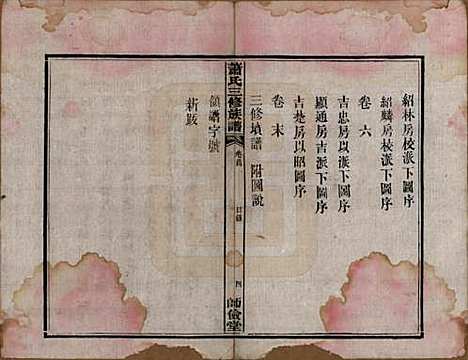 紹林房校派下圖序
紹麟房校派下圖序
卷六
吉忠房以派下圖序
顯通房吉派下圖序
吉楚房以昭圖序
卷末
三修墳譜 附圖說
蕭氏三修族譜 卷首 目錄 四 師儉堂
領譜字號
新跋